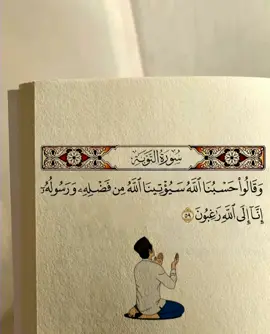 سُورَةُ التَّوْبَةِ
وَقَالُوا۟ حَسْبُنَا ٱللَّهُ سَيُؤْتِينَا ٱللَّهُ مِن فَضْلِهِۦ وَرَسُولُهُۥٓ
إِنَّآ إِلَى ٱللَّهِ رَٰغِبُونَ ٥٩